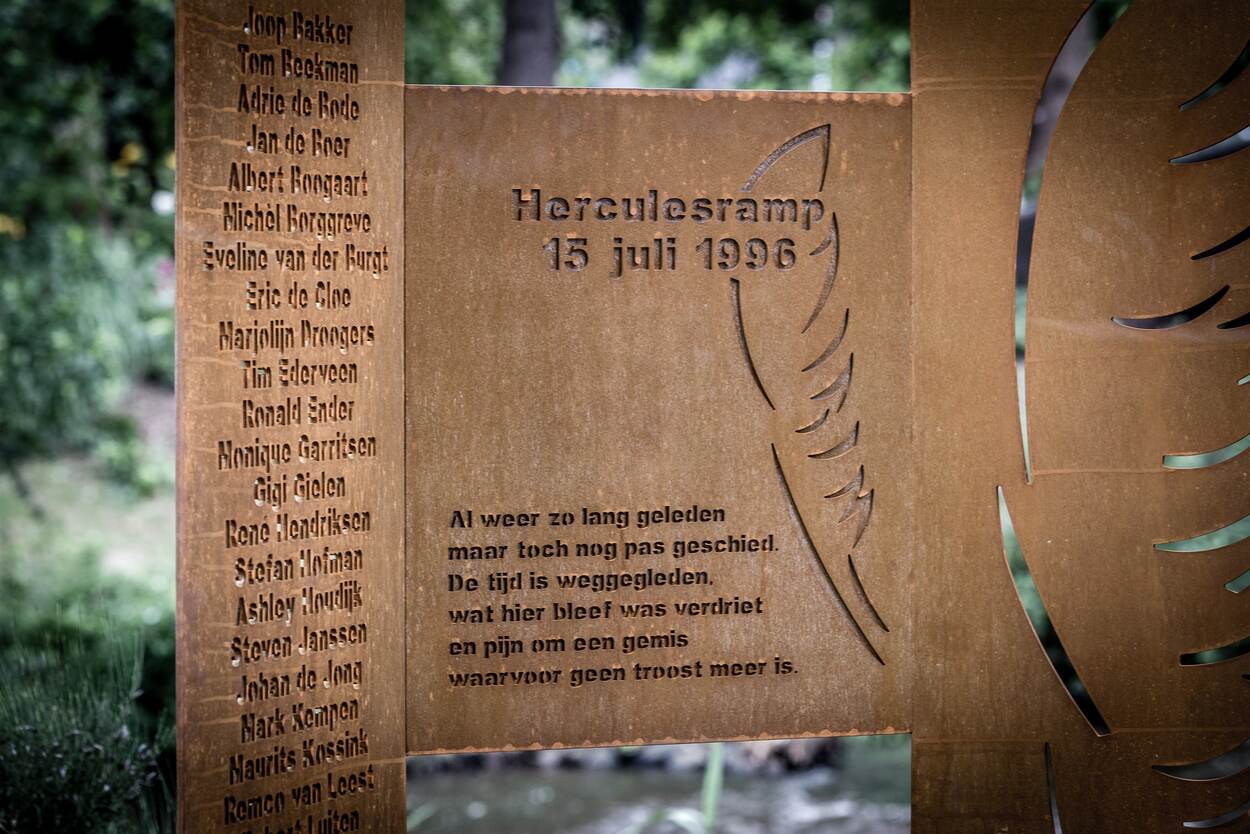 Joop Bakker
Tom Beekman
Adrie de Bode
Jan de Boer
Albert Boogaart
Michèl Borggreve
Eveline van der Burgt
Eric de Cloe
Marjolijn Droogers
Tim Ederveen
Ronald Ender
Monique Garritsen
Gigi Gielen
René Hendriksen
Stefan Hofman
Ashley Houdijk
Steven Janssen
Johan de Jong
Mark Kempen
Maurits Kossink
Remco van Leest
Robert Luiten
Herculesramp
15 juli 1996
Al weer zo lang geleden
maar toch nog pas geschied.
De tijd is weggegleden,
wat hier bleef was verdriet
en pijn om een gemis
waarvoor geen troost meer is.